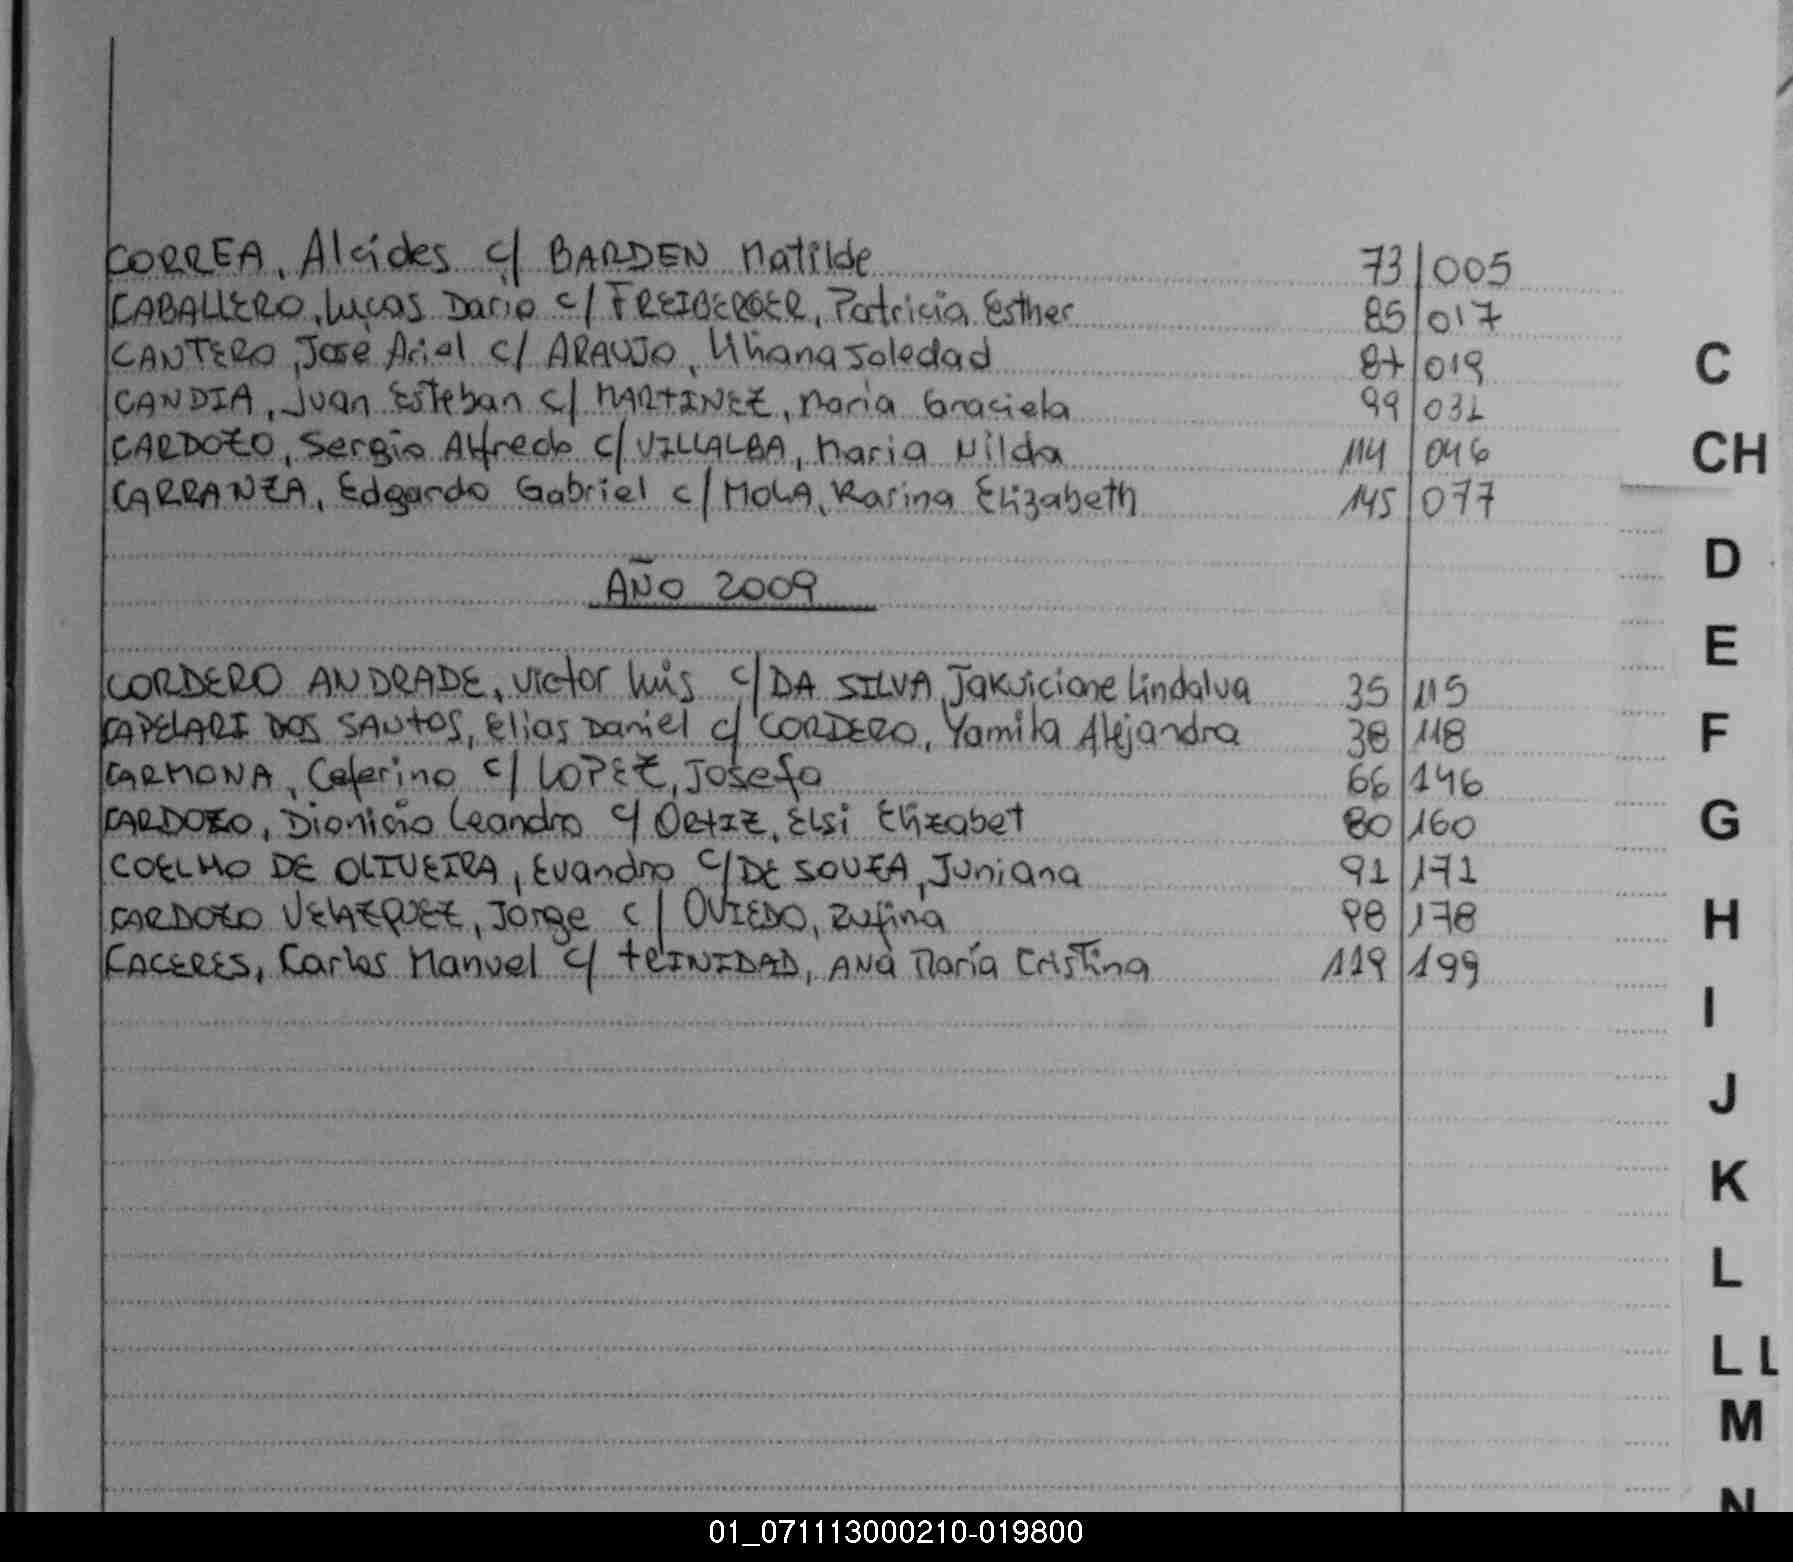 CORREA, Alcides c/ BARDEN Matilde 73 005
CABALLERO, Lucas Dario c/ FREIBERGER, Patricia Esther 85 017
CANTERO, Jose Ariel c/ ARAUJO, Liliana Soledad 87 019
CANDIA, Juan Esteban c/ MARTINEZ, Maria Graciela 99 031
CARDOZO, Sergio Alfredo c/ VILLALBA, Maria Nilda 114 046
CARRANZA, Edgardo Gabriel c/ MOLA, Karina Elizabeth 145 077
AÑO 2009
CORDERO ANDRADE, Victor Luis c/ DA SILVA, Jakuiciane Lindalva 35 115
CAPELARI DOS SANTOS, Elias Daniel c/ CORDERO, Yamila Alejandra 38 118
CARMONA, Ceferino c/ LOPEZ, Josefa 66 146
CARDOZO, Dionicio Leandro c/ ORTIZ, Elsi Elizabet 80 160
COELHO DE OLIVEIRA, Evandro c/ DE SOUZA, Juniana 91 171
CARDOZO VELAZQUEZ, Jorge c/ OVIEDO, Rufina 98 178
CACERES, Carlos Manuel c/ TRINIDAD, Ana María Cristina 119 199
C
CH
D
E
F
G
H
I
J
K
L
LL
M
N
01_071113000210-019800